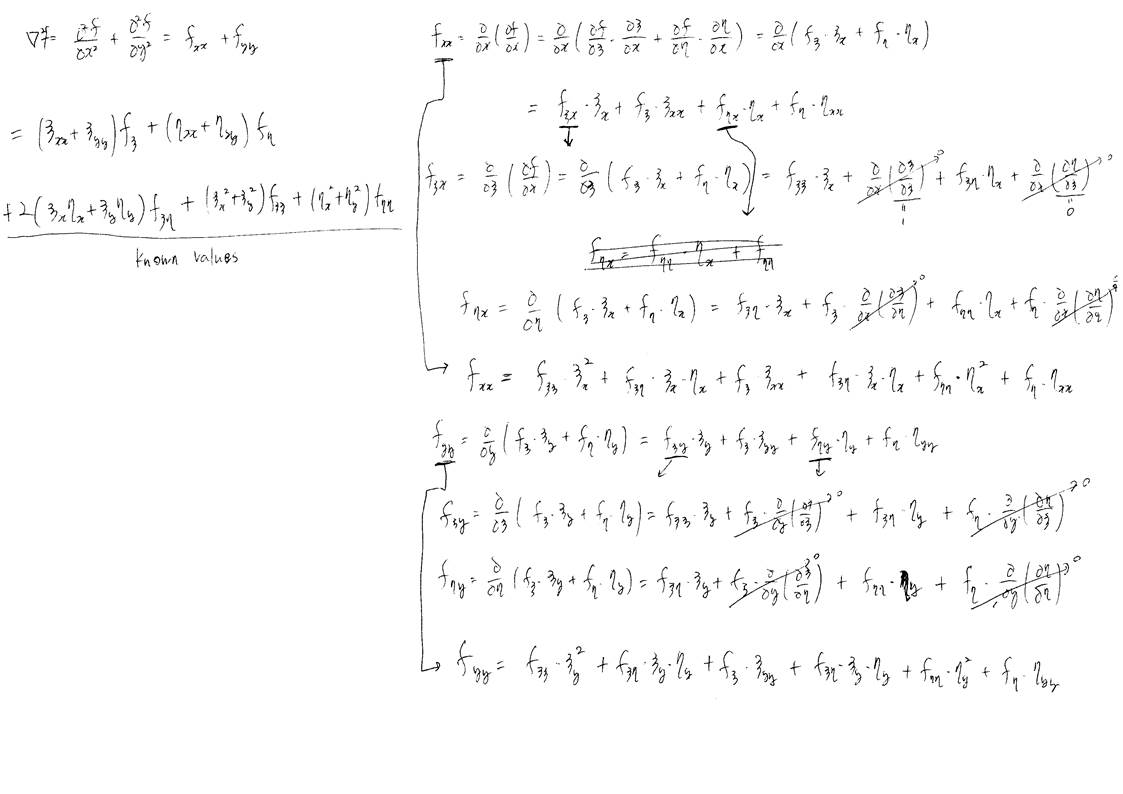 ∇²f = ∂²f/∂x² + ∂²f/∂y² = f_xx + f_yy
= (ξ_xx + ξ_yy) f_ξ + (η_xx + η_yy) f_η
+ 2(ξ_x η_x + ξ_y η_y) f_ξη + (ξ_x² + ξ_y²) f_ξξ + (η_x² + η_y²) f_ηη
known values
f_xx = ∂/∂x (∂f/∂x) = ∂/∂x (∂f/∂ξ · ∂ξ/∂x + ∂f/∂η · ∂η/∂x) = ∂/∂x (f_ξ · ξ_x + f_η · η_x)
= f_ξx · ξ_x + f_ξ · ξ_xx + f_ηx · η_x + f_η · η_xx
f_ξx = ∂/∂ξ (∂f/∂x) = ∂/∂ξ (f_ξ · ξ_x + f_η · η_x) = f_ξξ · ξ_x + ∂/∂x (∂ξ/∂ξ) → 0 + f_ξη · η_x + ∂/∂x (∂η/∂ξ) → 0
" 1 " 0
f_ηx = f_ηη · η_x + f_ηη
f_ηx = ∂/∂η (f_ξ · ξ_x + f_η · η_x) = f_ξη · ξ_x + f_ξ · ∂/∂x (∂ξ/∂η) → 0 + f_ηη · η_x + f_η · ∂/∂x (∂η/∂η)
f_xx = f_ξξ · ξ_x² + f_ξη · ξ_x · η_x + f_ξ ξ_xx + f_ξη · ξ_x · η_x + f_ηη · η_x² + f_η · η_xx
f_yy = ∂/∂y (f_ξ · ξ_y + f_η · η_y) = f_ξy · ξ_y + f_ξ · ξ_yy + f_ηy · η_y + f_η · η_yy
f_ξy = ∂/∂ξ (f_ξ · ξ_y + f_η · η_y) = f_ξξ · ξ_y + f_ξ · ∂/∂y (∂ξ/∂ξ) → 0 + f_ξη · η_y + f_η · ∂/∂y (∂η/∂ξ) → 0
f_ηy = ∂/∂η (f_ξ · ξ_y + f_η · η_y) = f_ξη · ξ_y + f_ξ · ∂/∂y (∂ξ/∂η) → 0 + f_ηη · η_y + f_η · ∂/∂y (∂η/∂η) → 0
f_yy = f_ξξ · ξ_y² + f_ξη · ξ_y · η_y + f_ξ · ξ_yy + f_ξη · ξ_y · η_y + f_ηη · η_y² + f_η · η_yy